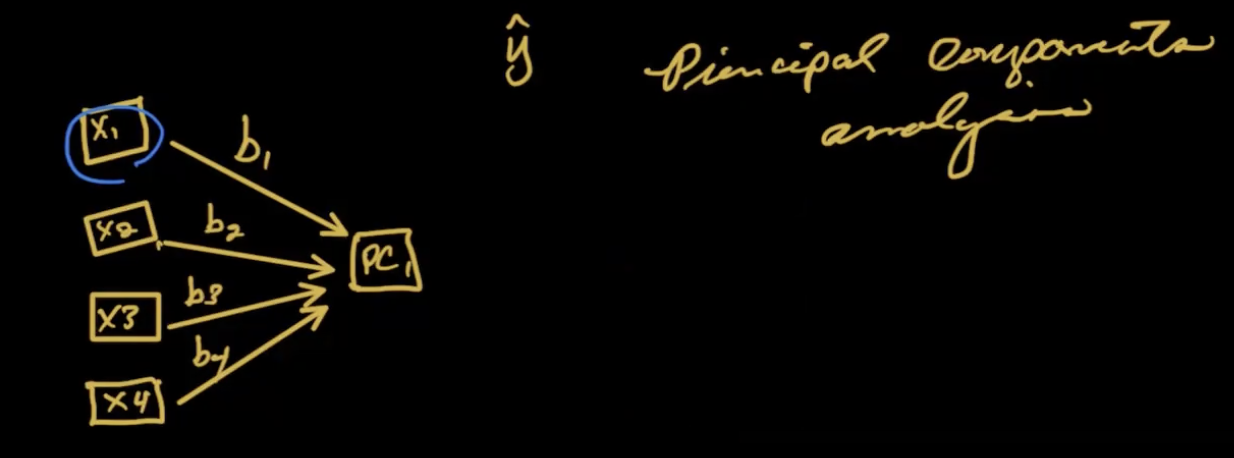 ŷ
Principal components
analysis
X₁
b₁
X2
b₂
PC₁
X3
b3
b4
X4